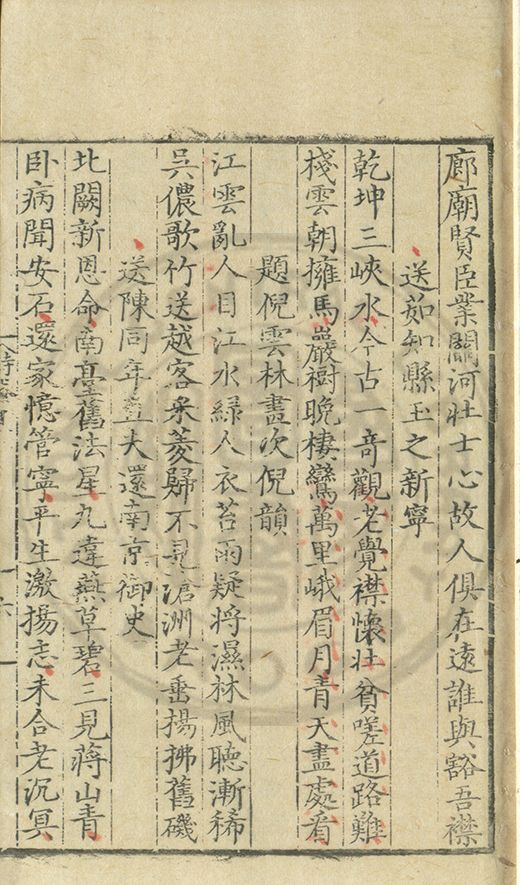 廊廟賢臣業關河壯士心故人俱在遠誰與豁吾襟
送茹知縣玉之新寧
乾坤三峽水今古一竒觀老覺襟懷壯貧嗟道路難
棧雲朝擁馬巖樹晩棲鸞萬里峨眉月青天盡處看
題倪雲林畫次倪韻
江雲亂人目江水緑人衣苔雨疑將濕林風聴漸稀
呉儂歌竹送越客采菱歸不見滄洲老垂楊拂舊磯
送陳同年直夫還南京御史
北闕新恩命南臺舊法星九違燕草碧三見蔣山青
卧病聞安石還家憶管寧平生激揚志未合老沉冥